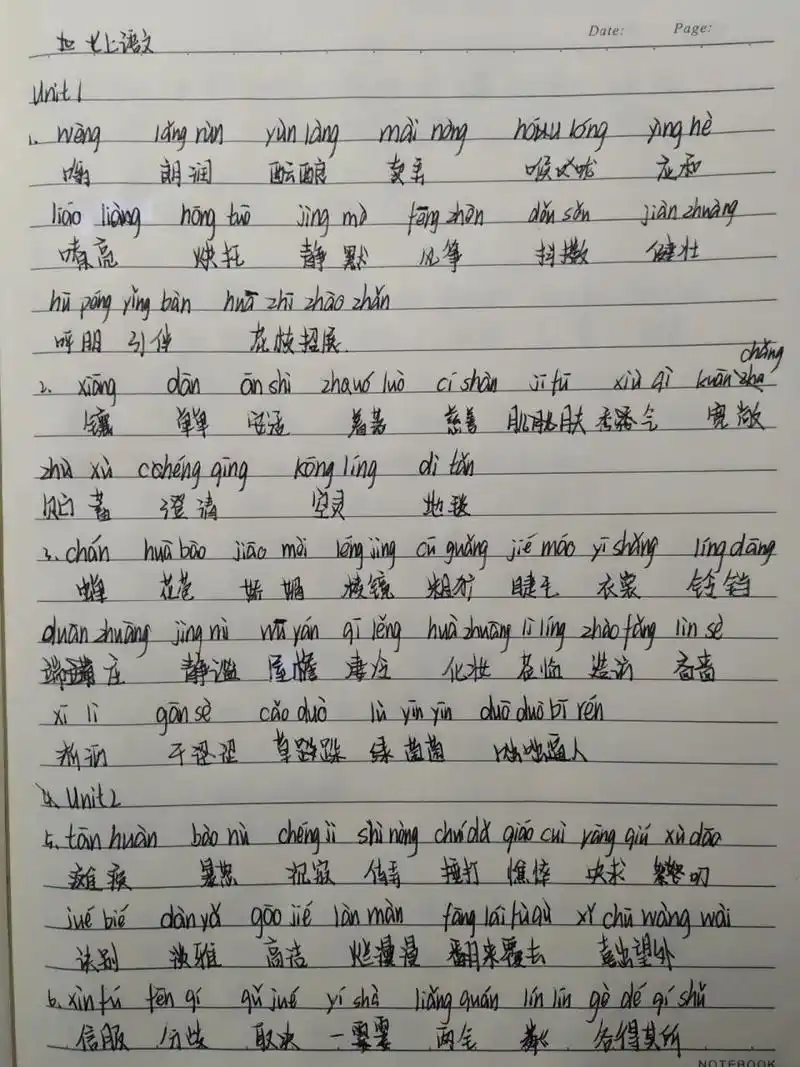 Date: Page:
七上语文
Unit 1
1. wēng lǎng rùn yùn làng mài nòng hóu lóng yìng hè
嗡 朗润 酝酿 卖弄 喉咙 应和
liáo liàng hōng tuō jìng mò fēng zhēn dǒu sǒu jiàn zhuàng
嘹亮 烘托 静默 风筝 抖擞 健壮
hū péng yǐng bàn huā zhī zhāo zhǎn
呼朋引伴 花枝招展
2. xiāng dān ān shì zhuó luò cí shàn jī fū xiù qì kuān chǎng
镶 单 安适 着落 慈善 肌肤 秀气 宽敞
zhù xù chéng qīng kōng líng dì tǎn
贮蓄 澄清 空灵 地毯
3. chán huā bāo jiāo mèi léng jìng cū guǎng jié máo yī shāng líng dāng
蝉 花苞 娇媚 棱镜 粗犷 睫毛 衣裳 铃铛
duān zhuāng jìng mì wū yán qī lěng huà zhuāng lì líng zhào fǎng lìn sè
端庄 静谧 屋檐 凄冷 化妆 莅临 造访 吝啬
xī lì gān sè cǎo duò lǜ yīn yīn duō duō bī rén
淅沥 干涩 草垛 绿茵茵 咄咄逼人
Unit 2
5. tān huàn bào nù chén jì shì nòng chuí dǎ qiáo cuì yāng qiú xù dāo
瘫痪 暴怒 沉寂 侍弄 捶打 憔悴 央求 絮叨
jué bié dàn yǎ gāo jié làn màn fān lái fù qù xǐ chū wàng wài
诀别 淡雅 高洁 烂漫 翻来覆去 喜出望外
6. xìn fú fēn qí qǔ jué yí shà liǎng quán lín lín gè dé qí suǒ
信服 分歧 取决 一霎 两全 粼粼 各得其所
NOTEBOOK